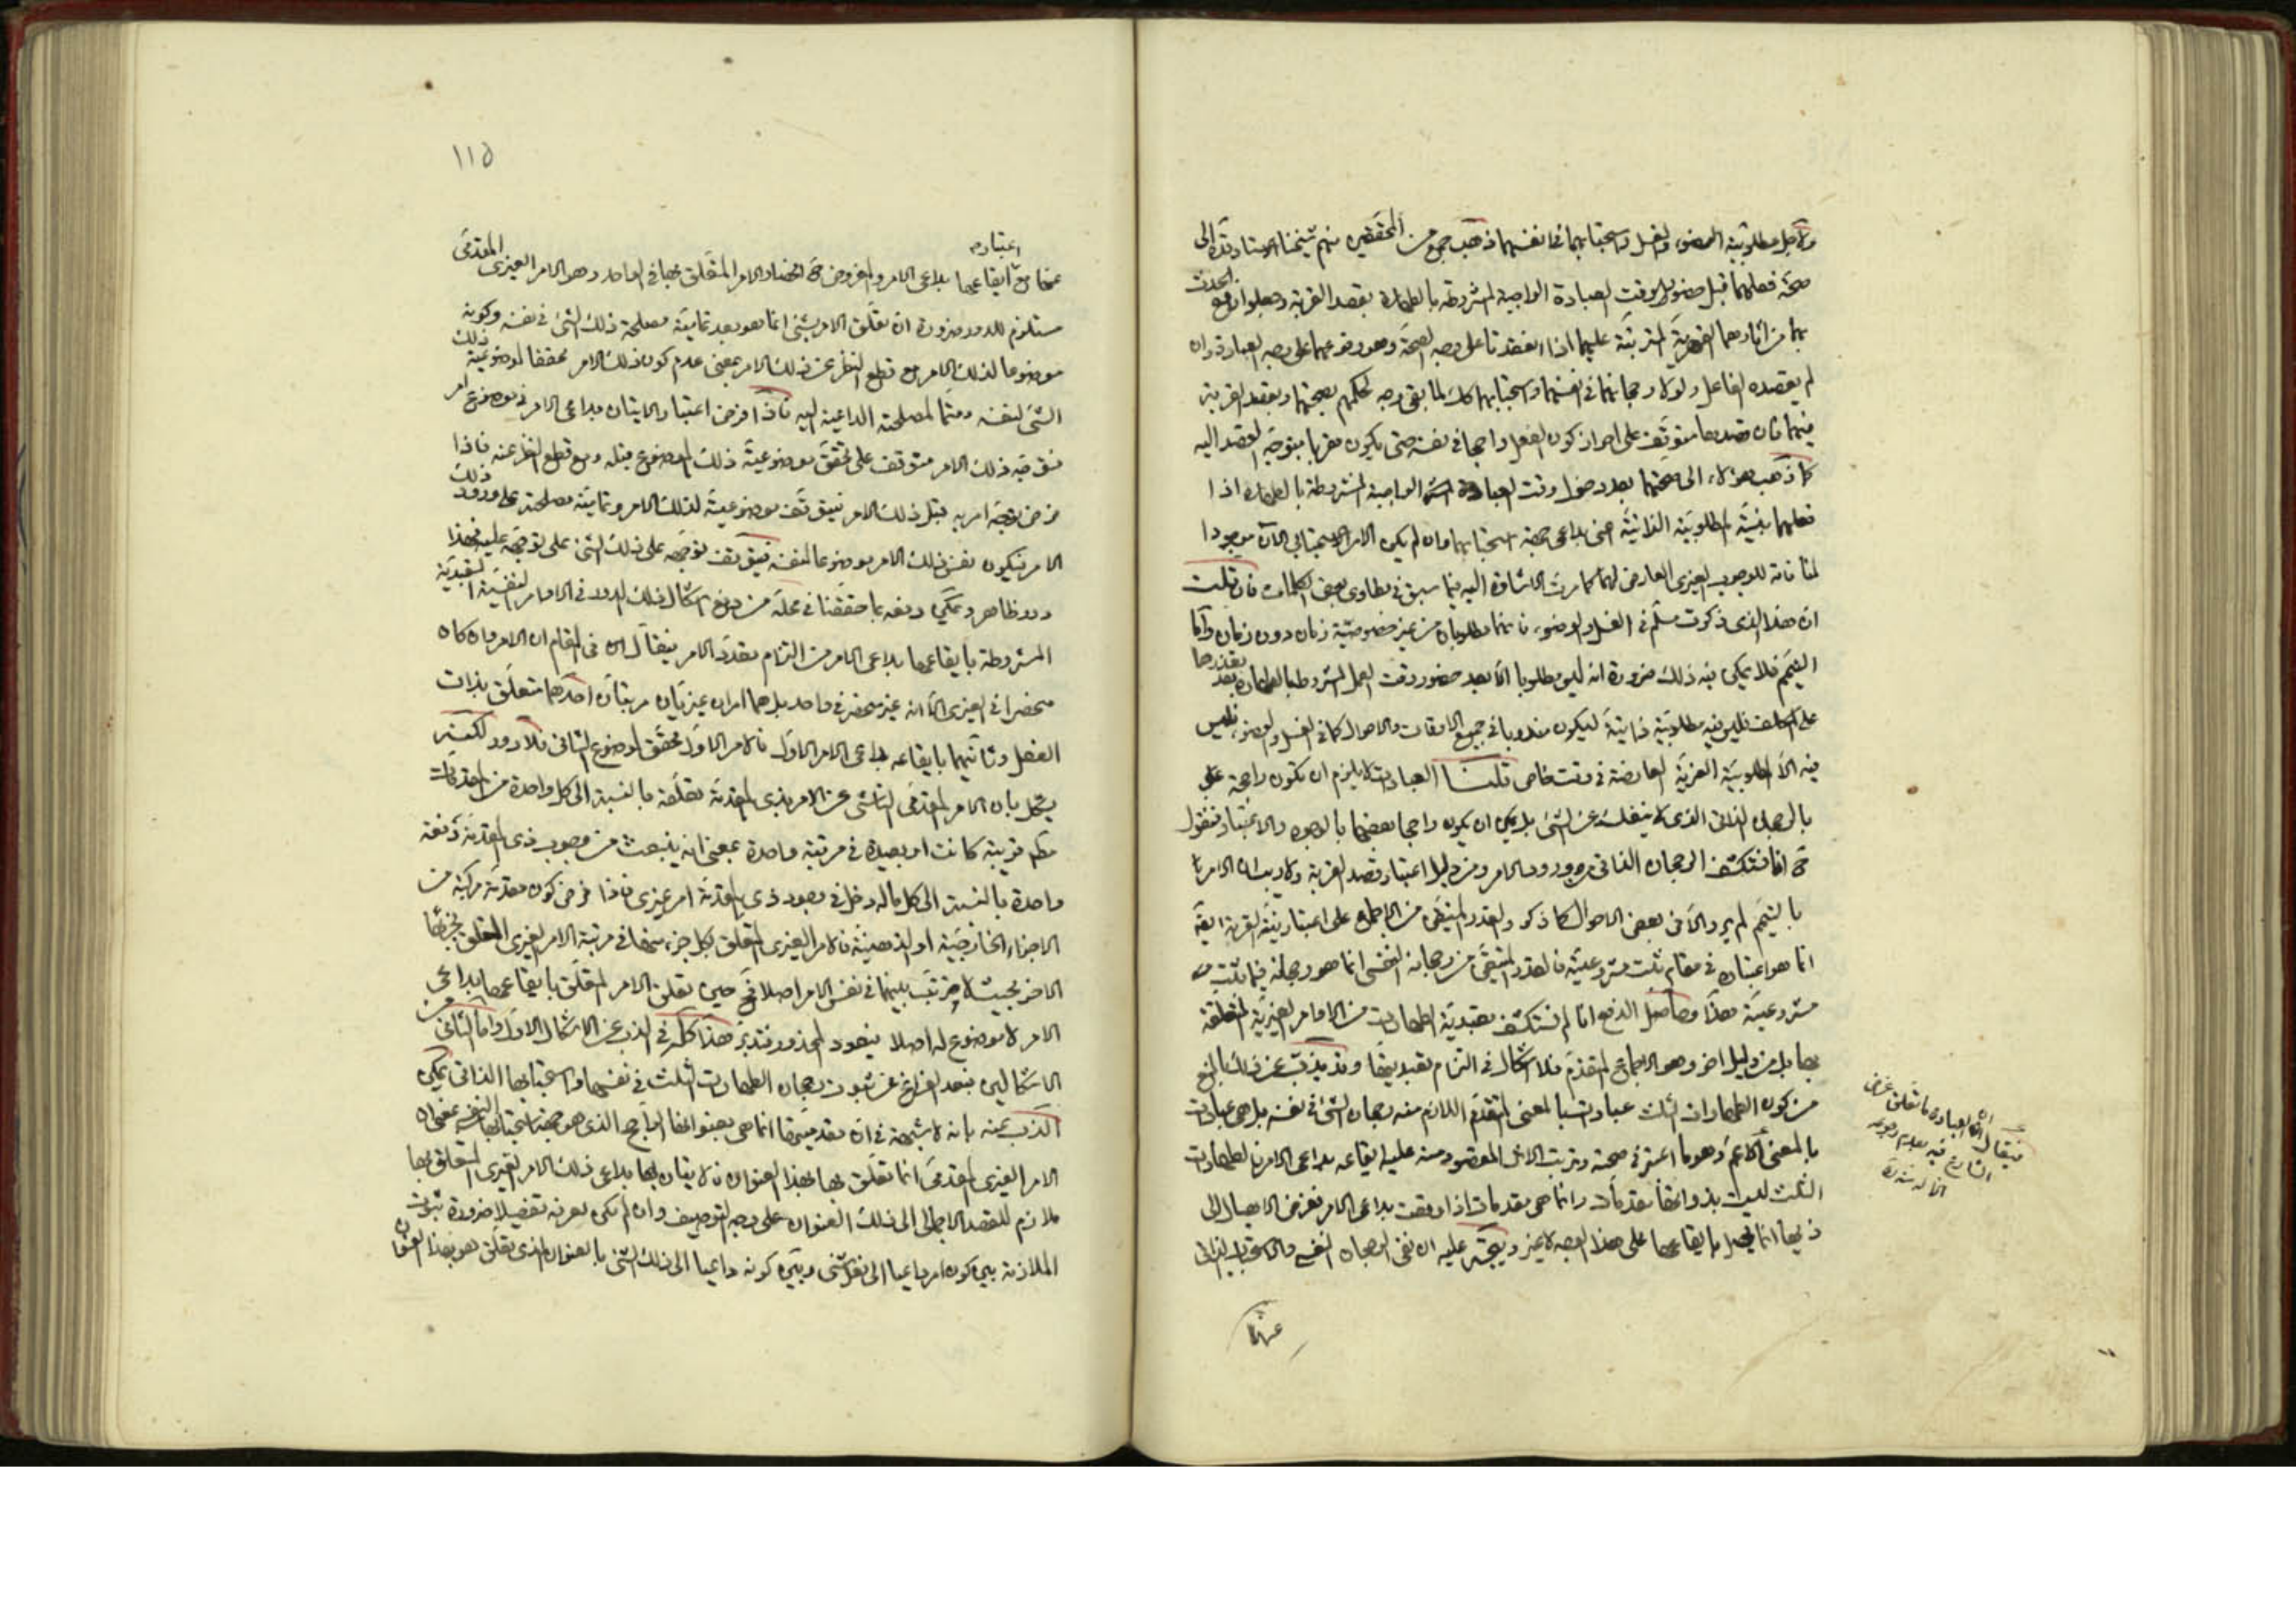 ولأجل مطلوبية الوضوء والغسل واستحبابهما في انفسهما ذهب جمع من المحققين منهم شيخنا الاستاد قده الى
صحة فعلهما قبل حضور وقت العبادة الواجبة المشروطة بالطهارة بقصد القربة وجعلوا رفع الحدث
بهما من اثارهما القهرية المترتبة عليهما اذا انعقدتا على وجه الصحة وهو وقوعهما على وجه العبادة وان
لم يقصده الفاعل ولولا رجحانهما في انفسهما واستحبابهما كك لما بقى وجه لحكمهم بصحتهما وبقصد القربة
فيهما فان قصدها متوقف على احراز كون الفعل راجحا في نفسه حتى يكون مقربا متوجه القصد اليه
كما ذهب هؤلاء الى صحتهما بعد دخول وقت العبادة الواجبة المشروطة بالطهارة اذا
فعلهما بنية المطلوبية الذاتية اعنى بداعى جهة استحبابهما وان لم يكن الامر الاستحبابى الآن موجودا
لمنافاته للوجوب الغيرى العارض لهما كما مرت الاشارة اليه فيما سبق في مطاوى بعض الكلمات فان قلت
ان هذا الذى ذكرت مسلم في الغسل والوضوء فانهما مطلوبان من غير خصوصية زمان دون زمان واما
التيمم فلا يمكن فيه ذلك ضرورة انه ليس مطلوبا الا بعد حضور وقت العمل المشروط بالطهارة بعد تعذرها
على المكلف فليس فيه مطلوبية ذاتية ليكون مندوبا في جميع الاوقات والاحوال كما في الغسل والوضوء فليس
فيه الا المطلوبية الغيرية العارضة في وقت خاص قلنا العبادات لا يلزم ان تكون راجحة
بالرجحان الذاتى الذى لا ينفك عن الشئ بل يمكن ان يكون راجحا بعضها بالوجوه والاعتبار فنقول
ح انا نستكشف الرجحان الذاتى من ورود الامر ومن دليل اعتبار قصد القربة ولا ريب ان الامر
بالتيمم لم يرد الا في بعض الاحوال كما ذكر والقدر المتيقن من الاجماع على اعتبار نية القربة ايضا
انما هو اعتباره في مقام ثبت مشروعيته فالقدر المتيقن من رجحانه النفسى انما هو رجحانه فيما ثبت
مشروعيته هذا وحاصل الدفع انا لم نستكشف تعبدية الطهارات من الاوامر الغيرية المتعلقة
بها بل من دليل اخر وهو الاجماع المتقدم فلا اشكال في التزام تعبديتها وقد يذب عن ذلك بالمنع
من كون الطهارات الثلث عبادات بالمعنى المتقدم اللازم منه رجحان الشئ في نفسه بل هى عبادات
بالمعنى الاعم وهو ما اعتبر في صحته وترتب الاثر المقصود منه عليه ايقاعه بداعى الامر فالطهارات
الثلث ليست بذواتها مقدمات وانما هى مقدمات اذا وقعت بداعى الامر فغرض الايصال الى
ذيها انما يحصل بايقاعها على هذا الوجه لا غير ويتجه عليه ان نفى الرجحان النفسى والاستحباب الذاتى
عنها
فيقال ان العبادة ما تعلق غرض
الشارع فيه بعدم وجوده
١١٥
عنها مع اعتبار ايقاعها بداعى الامر والمفروض ح انحصار الامر المتعلق بها في الواحد وهو الامر الغيرى المقدمى
مستلزم للدور ضرورة ان تعلق الامر بشئ انما هو بعد تمامية مصلحة ذلك الشئ في نفسه وكونه
موضوعا لذلك الامر مع قطع النظر عن ذلك الامر بمعنى عدم كون ذلك الامر محققا لموضوعية ذلك
الشئ لنفسه ومتمما لمصلحته الداعية اليه فاذا فرض اعتبار الاتيان بداعى الامر في موضوع امر
فتوجه ذلك الامر متوقف على تحقق موضوعية ذلك الموضوع قبله ومع قطع النظر عنه فاذا
فرض توجه امر به قبل ذلك الامر فيتوقف موضوعيته لذلك الامر وتمامية مصلحته على ورود ذلك
الامر فيكون نفس ذلك الامر موضوعا لنفسه فيتوقف توجهه على ذلك الشئ على توجهه عليه فهذا
دور ظاهر ويمكن دفعه بما حققنا في محله من دفع اشكال ذلك الدور في الاوامر النفسية التعبدية
المشروطة بايقاعها بداعى الامر من التزام تعدد الامر فيقال في المقام ان الامر وان كان
منحصرا في الغيرى الا انه غير منحصر في واحد بل هما امران غيريان مرتبان احدهما متعلق بذات
الفعل وثانيهما بايقاعه بداعى الامر الاول فالامر الاول محقق لموضوع الثانى فلا دور لكنه
يشكل بان الامر المقدمى الناشئ عن الامر بذى المقدمة تعلقه بالنسبة الى كل واحدة من المقدمات
قريبة كانت او بعيدة في مرتبة واحدة بمعنى انه ينبعث من وجوب ذى المقدمة دفعة
واحدة بالنسبة الى كل ماله دخل في وجود ذى المقدمة امر غيرى فاذا فرض كون مقدمة مركبة من
الاجزاء الخارجية او الذهنية فالامر الغيرى المتعلق بكل جزء منها في مرتبة الامر الغيرى المتعلق بجزئها
الاخر بحيث لا ترتب بينهما في نفس الامر اصلا فح حين تعلق الامر المتعلق بايقاعها بداعى
الامر لا موضوع له اصلا فيعود المحذور فتدبر هذا كله في الذب عن الاشكال الاول واما الثانى من
الاشكالين فبعد الفراغ عن ثبوت رجحان الطهارات الثلث في نفسها واستحبابها الذاتى يمكن
الذب عنه بانه لا شبهة في ان مقدميتها انما هى بعنوانها الراجح الذى هو جهة استحبابها النفسى بمعنى ان
الامر الغيرى المقدمى انما تعلق بها بهذا العنوان فالاتيان بها بداعى ذلك الامر الغيرى المتعلق بها
ملازم للقصد الاجمالى الى ذلك العنوان على وجه التوصيف وان لم يكن يعرفه تفصيلا ضرورة ثبوت
الملازمة بين كون امر داعيا الى فعل شئ وبين كونه داعيا الى ذلك الشئ بالعنوان الذى تعلق هو بهذا العنوان